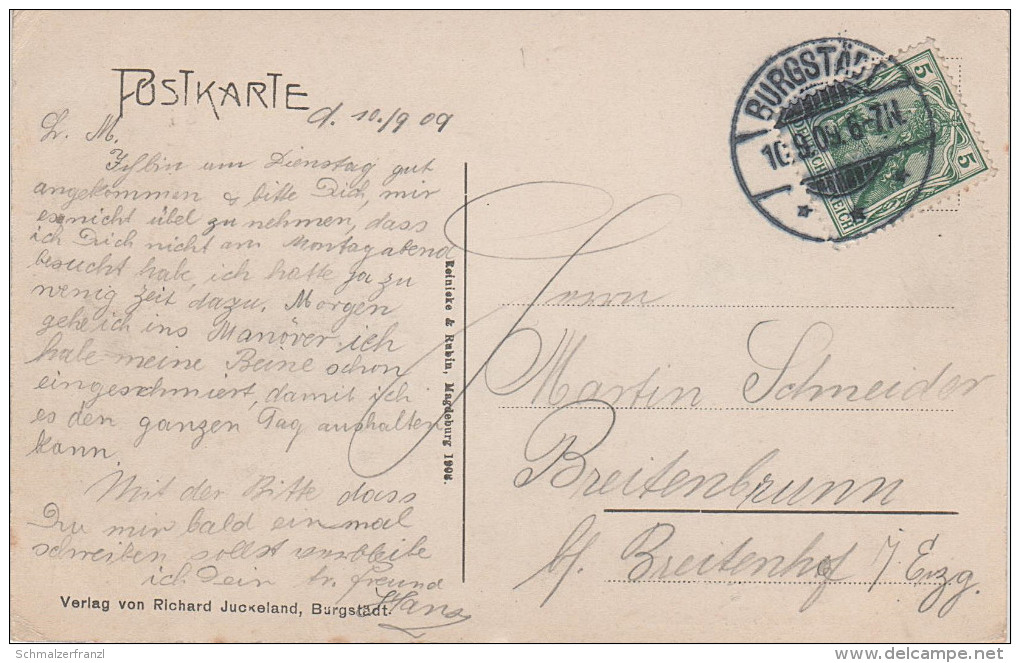 POSTKARTE
d. 10./9 09
L. M.
Ich bin am Dienstag gut
angekommen & bitte Dich, mir
es nicht übel zu nehmen, dass
ich Dich nicht am Montag abend
besucht habe, ich hatte ja zu
wenig Zeit dazu. Morgen
gehe ich ins Manöver ich
habe meine Beine schon
eingeschmiert, damit ich
es den ganzen Tag aushalten
kann.
Mit der Bitte dass
Du mir bald ein mal
schreiben sollst verbleibe
ich Dein tr. Freund
Hans
Verlag von Richard Juckeland, Burgstädt.
Reinicke & Rubin, Magdeburg 1908.
BURGSTÄDT
10.9.09.6-7N.
5
5
DEUTSCHES REICH
Herrn
Martin Schneider
Breitenbrunn
bf. Breitenhof i/Erzg.
Schmalzerfranzl
delcampe.net